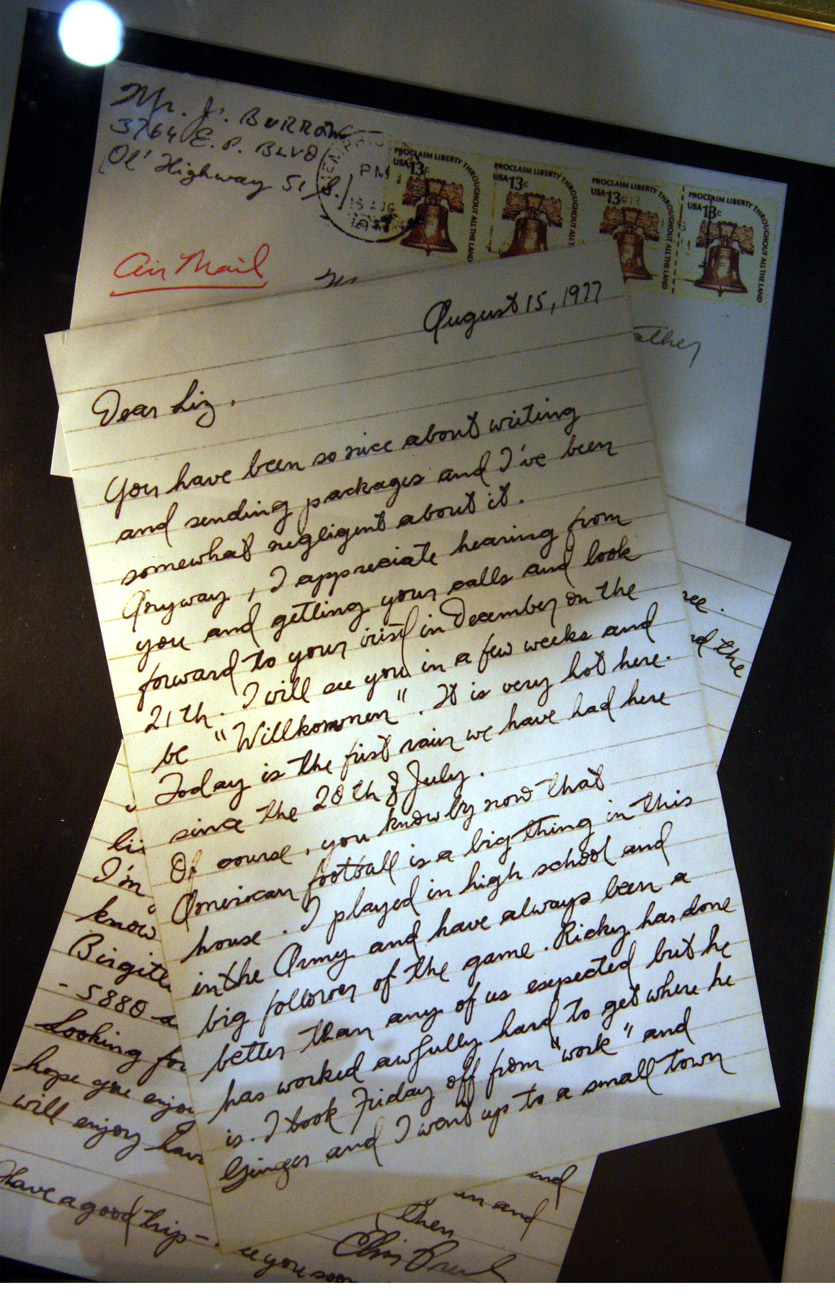 Mr. J. BURROWS
3764 E. P. BLVD
Ol' Highway 51 S.
MEMPHIS
PM
15 AUG
1977
PROCLAIM LIBERTY THROUGHOUT ALL THE LAND
USA 13c
PROCLAIM LIBERTY THROUGHOUT ALL THE LAND
USA 13c
PROCLAIM LIBERTY THROUGHOUT ALL THE LAND
USA 13c
PROCLAIM LIBERTY THROUGHOUT ALL THE LAND
USA 13c
Air Mail
August 15, 1977
Dear Liz,
You have been so nice about writing
and sending packages and I've been
somewhat negligent about it.
Anyway, I appreciate hearing from
you and getting your calls and look
forward to your visit in December on the
21th. I will see you in a few weeks and
be "Willkommen". It is very hot here.
Today is the first rain we have had here
since the 20th of July.
Of course, you know by now that
American football is a big thing in this
house. I played in high school and
in the Army and have always been a
big follower of the game. Ricky has done
better than any of us expected but he
has worked awfully hard to get where he
is. I took Friday off from "work" and
Ginger and I went up to a small town
nd the
I'm
know
Birgit
- 5880
Looking for
hope you enjoy
will enjoy hav
Have a good trip -
ee you soon
and
and
then
Elvis Presley